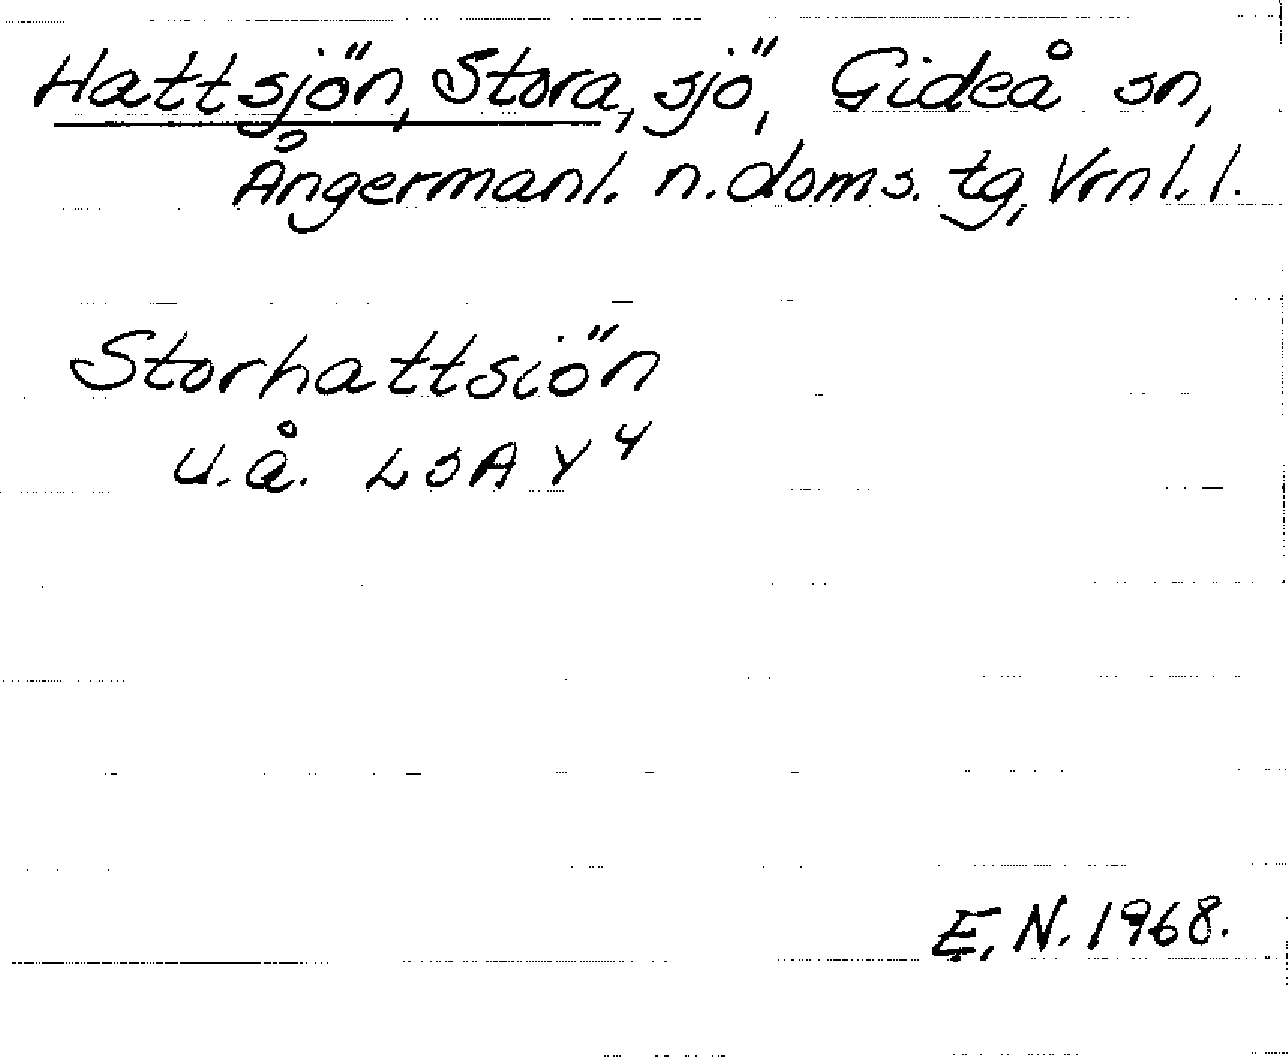 Hattsjön, Stora, sjö, Gideå sn,
Ångermanl. n. doms. tg, Vrnl. l.
Storhattsiön
u.å. LSA Y 4
E.N. 1968.